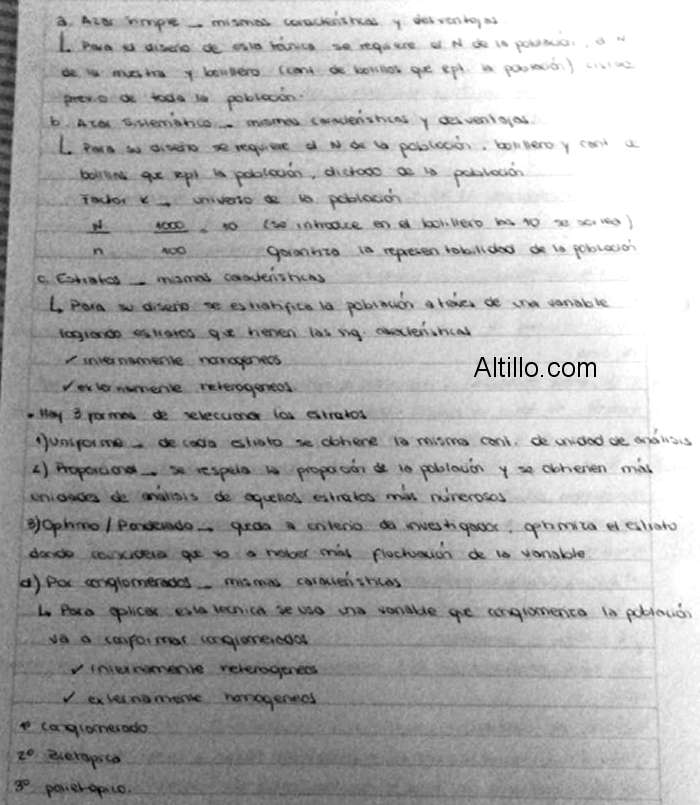 a. Azar simple → mismas características y desventajas
↳ Para el diseño de esta técnica se requiere el N de la población, el N
de la muestra y bolillero (cant. de bolillos que rpt. la población)
previo de toda la población.
b. Azar Sistemático → mismas características y desventajas.
↳ Para su diseño se requiere el N de la población, bolillero y cant. de
bolillos que rpt la población, dictado de la población
Factor K → universo de la población
N 1000 = 10 (se introduce en el bolillero los 10 se sortea)
n 100 Garantiza la representabilidad de la población
c. Estratos → mismas características
↳ Para su diseño se estratifica la población a través de una variable
logrando estratos que tienen las sig. características
✓ internamente homogeneos
✓ externamente heterogeneos.
Altillo.com
• Hay 3 formas de seleccionar los estratos
1) Uniforme → de cada estrato se obtiene la misma cant. de unidad de análisis
2) Proporcional → se respeta la proporción de la población y se obtienen más
unidades de análisis de aquellos estratos más númerosos
3) Optimo / Ponderado → queda a criterio del investigador, optimiza el estrato
donde considera que va a haber más fluctuación de la variable.
d) Por conglomerados → mismas características
↳ Para aplicar esta tecnica se usa una variable que conglomeriza la población
va a conformar conglomerados
✓ internamente heterogeneos
✓ externamente homogeneos
1º Conglomerado
2º Bietapica
3º polietápico.